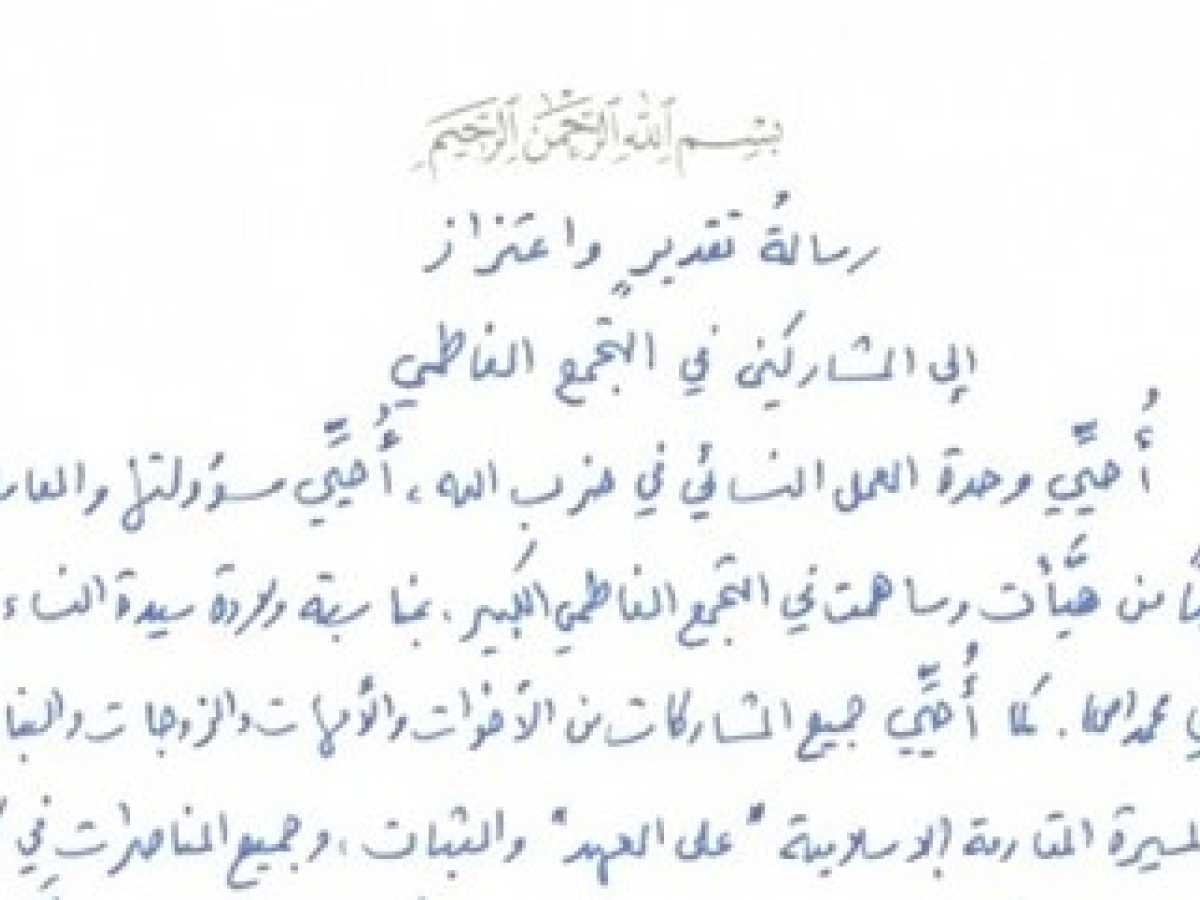 بِسْمِ اللهِ الرَّحْمٰنِ الرَّحِيمِ
رسالةُ تقديرٍ واعتزاز
إلى المشاركين في التجمع الفاطمي
أُحيِّي وحدة العمل النسائي في حزب الله، أُحيِّي مسؤولتها
من هيَّأت وساهمت في التجمع الفاطمي الكبير، بمناسبة ولادة سيدة النساء
كما أُحيِّي جميع المشاركات من الأخوات والأمهات والزوجات
لمسيرة المقاومة الإسلامية "على العهد" والثبات، وجميع المناصراتِ في